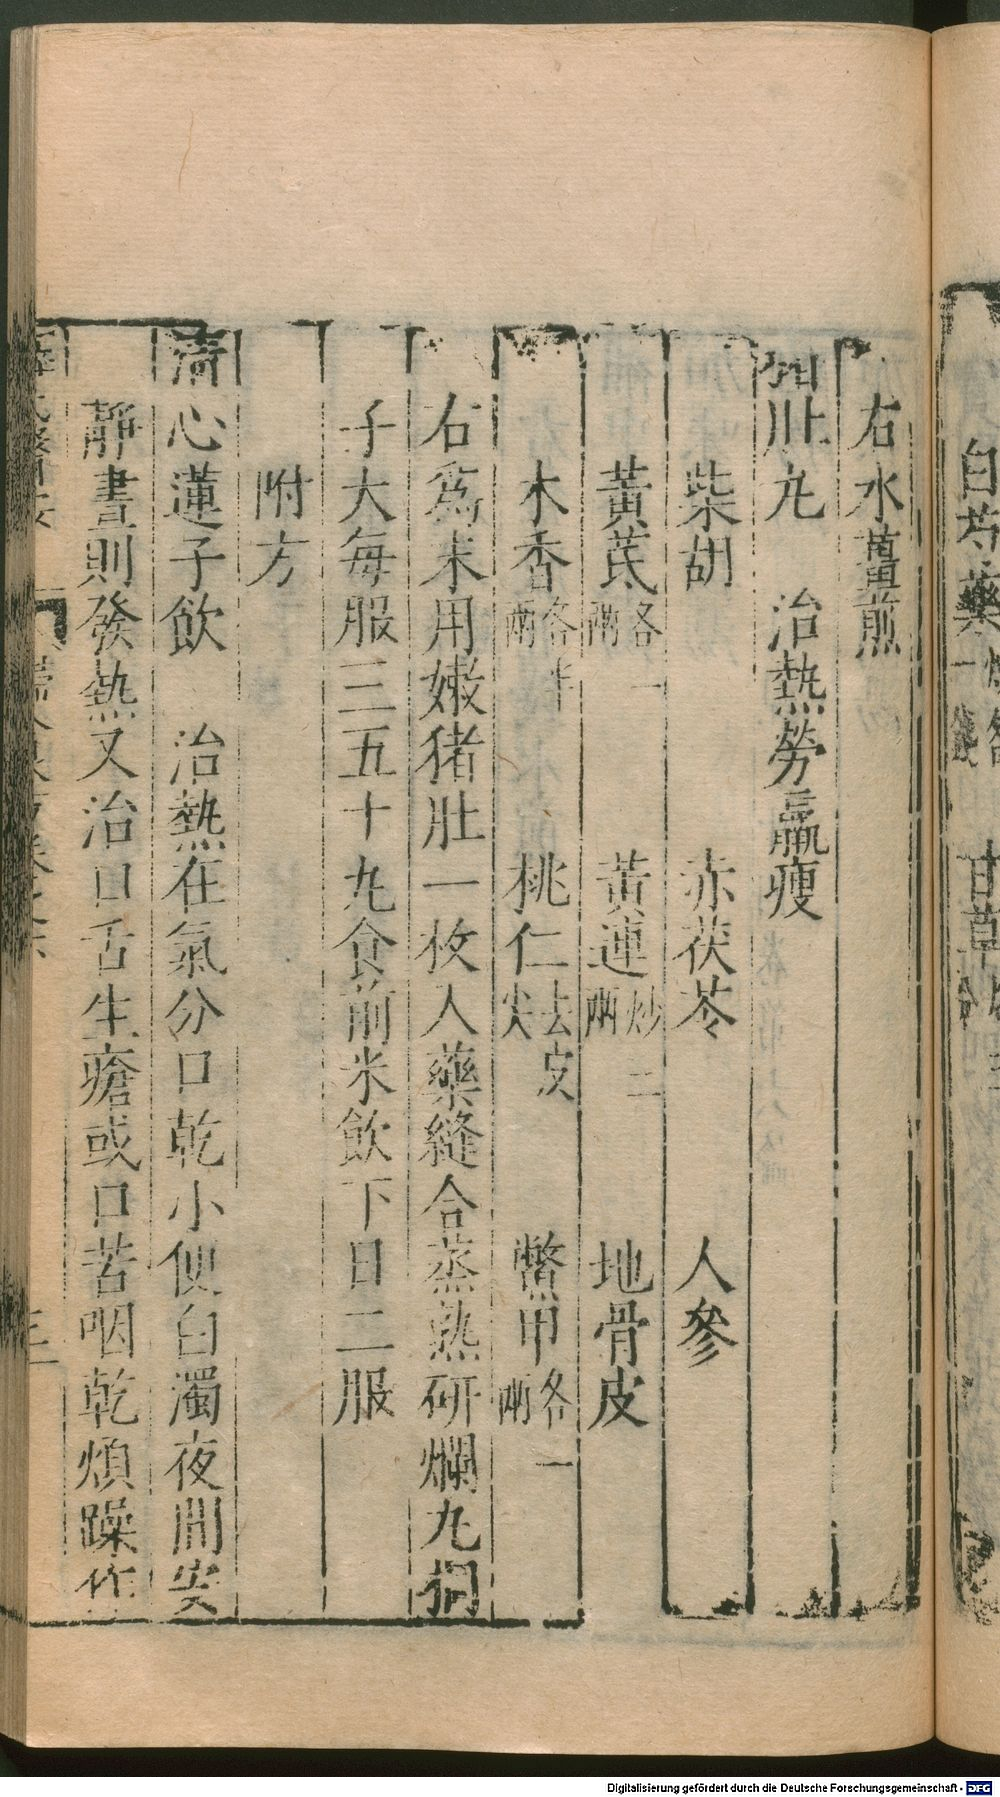 右水薑煎
猪肚丸　治熱勞羸瘦
柴胡　赤茯苓　人參
黃芪各一兩　黃連炒二兩　地骨皮
木香各半兩　桃仁去皮尖　鱉甲各一兩
右爲末用嫩猪肚一枚入藥縫合蒸熟研爛丸桐
子大每服三五十丸食前米飲下日二服
附方
清心蓮子飲　治熱在氣分口乾小便白濁夜間安
靜晝則發熱又治口舌生瘡或口苦咽乾煩躁作
白芍藥
甘草
Digitalisierung gefördert durch die Deutsche Forschungsgemeinschaft - DFG